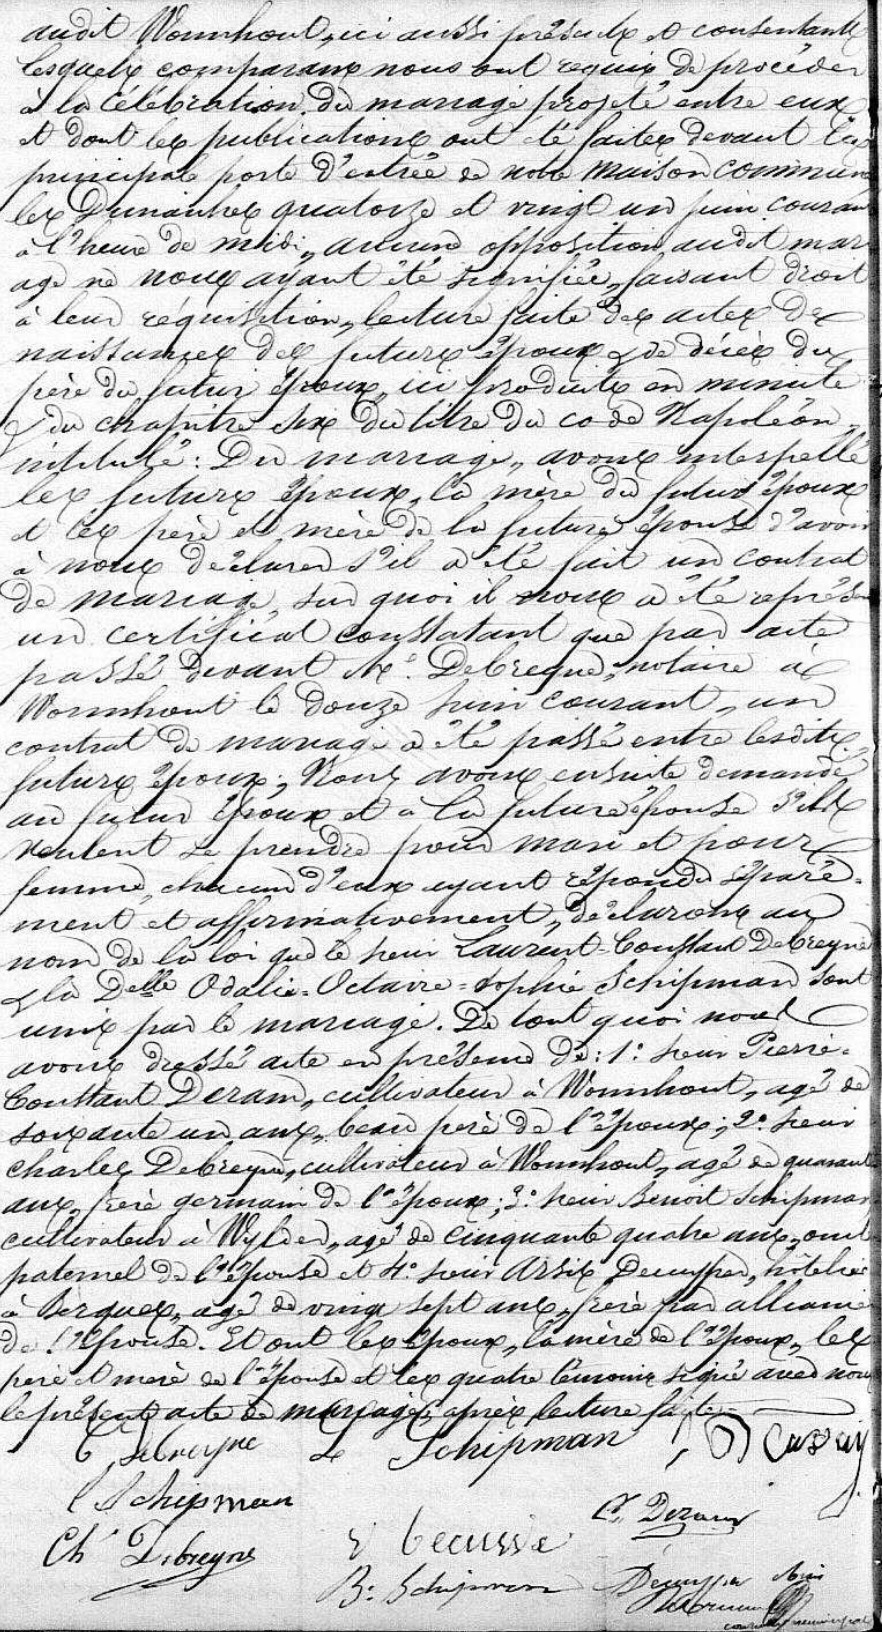 audit Wormhout, ici aussi présents et consentants
lesquels comparans nous ont requis de procéder
à la célébration du mariage projeté entre eux
et dont les publications ont été faites devant la
principale porte d'entrée de notre maison commune
les Dimanches quatorze et vingt un juin courant
à l'heure de midi, aucune opposition audit mari
age ne nous ayant été signifiée, faisant droit
à leur réquisition, lecture faite des actes de
naissances des futurs époux & de décès du
père du futur époux, ici produits en minute
& du chapitre six du titre du code Napoléon,
intitulé: Du mariage, avons interpellé
les futurs époux, la mère du futur époux
et les père et mère de la future épouse d'avoir
à nous déclarer s'il a été fait un contrat
de mariage, sur quoi il nous a été représ
un certificat constatant que par acte
passé devant Me. Debreyne, notaire à
Wormhout le douze juin courant, un
contrat de mariage a été passé entre lesdits
futurs époux; Nous avons ensuite demandé
au futur époux et à la future épouse s'ils
veulent se prendre pour mari et pour
femme, chacun d'eux ayant répondu séparé-
ment et affirmativement, déclarons au
nom de la loi que le sieur Laurent-Constant Debreyne
& la Delle Odalie-Octavie-Sophie Schipman sont
unis par le mariage. De tout quoi nous
avons dressé acte en présence de: 1° sieur Pierre-
Constant Deram, cultivateur à Wormhout, agé de
soixante un ans, beau père de l'époux; 2° sieur
Charles Debreyne, cultivateur à Wormhout, agé de quarante
ans, frère germain de l'époux; 3° sieur Benoit Schipman
cultivateur à Wylder, agé de cinquante quatre ans, oncle
paternel de l'épouse et 4° sieur Arsix Decuyper, hôtelier
à Bergues, agé de vingt sept ans, frère par alliance
de l'épouse. Et ont les époux, la mère de l'époux, les
père et mère de l'épouse et les quatre témoins signé avec nous
le présent acte de mariage, après lecture faite.
Debreyne Schipman
l Schipman Ch Debreyne
C. Deram
B: Schipman Decuyper